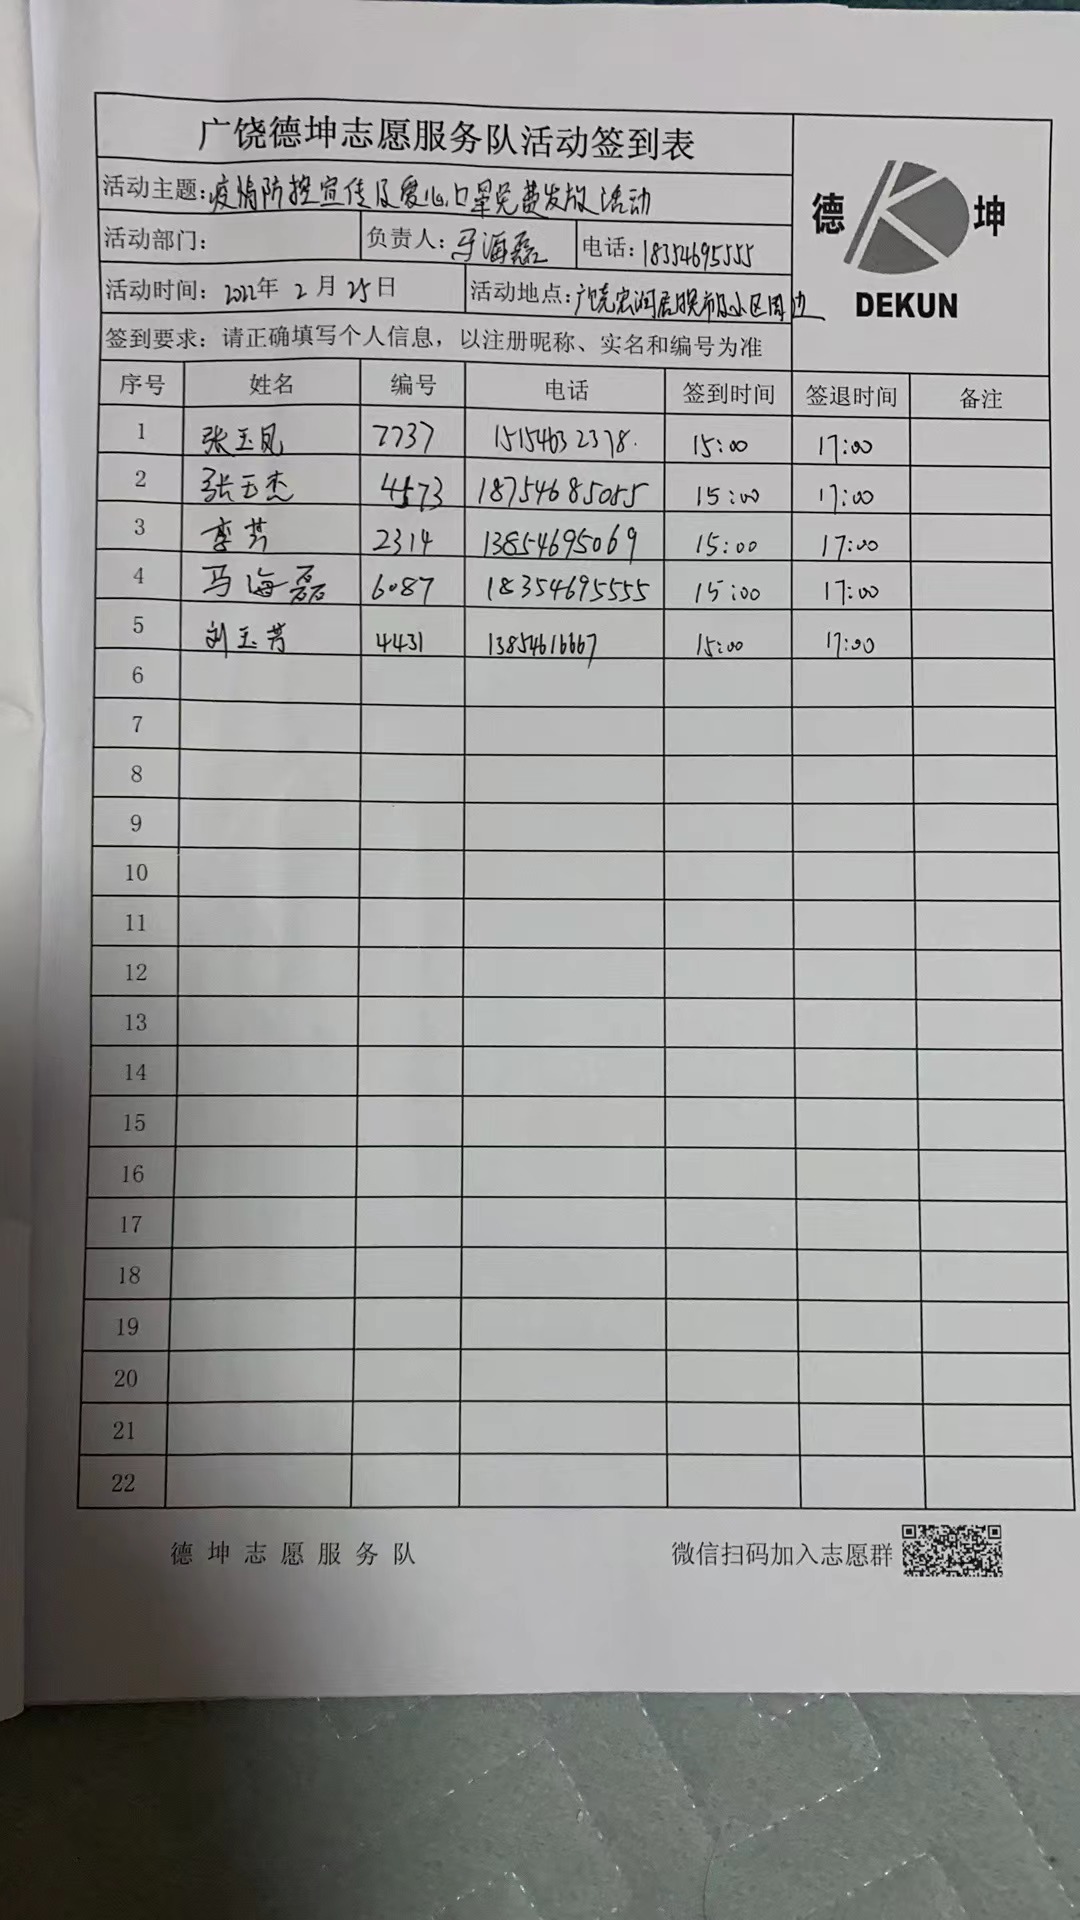 广饶德坤志愿服务队活动签到表
活动主题:疫情防控宣传及爱心口罩免费发放活动
活动部门: 负责人:马海磊 电话:18354695555
活动时间: 2022年 2 月 25 日 活动地点:广饶宏润居晚市及小区周边
德 坤
DEKUN
签到要求: 请正确填写个人信息, 以注册昵称、实名和编号为准
序号 姓名 编号 电话 签到时间 签退时间 备注
1 张玉凤 7737 15154632378. 15:00 17:00
2 张玉杰 4573 18754685085 15:00 17:00
3 李芹 2314 13854695069 15:00 17:00
4 马海磊 6087 18354695555 15:00 17:00
5 刘玉芳 4431 13854616667 15:00 17:00
6
7
8
9
10
11
12
13
14
15
16
17
18
19
20
21
22
德坤志愿服务队 微信扫码加入志愿群